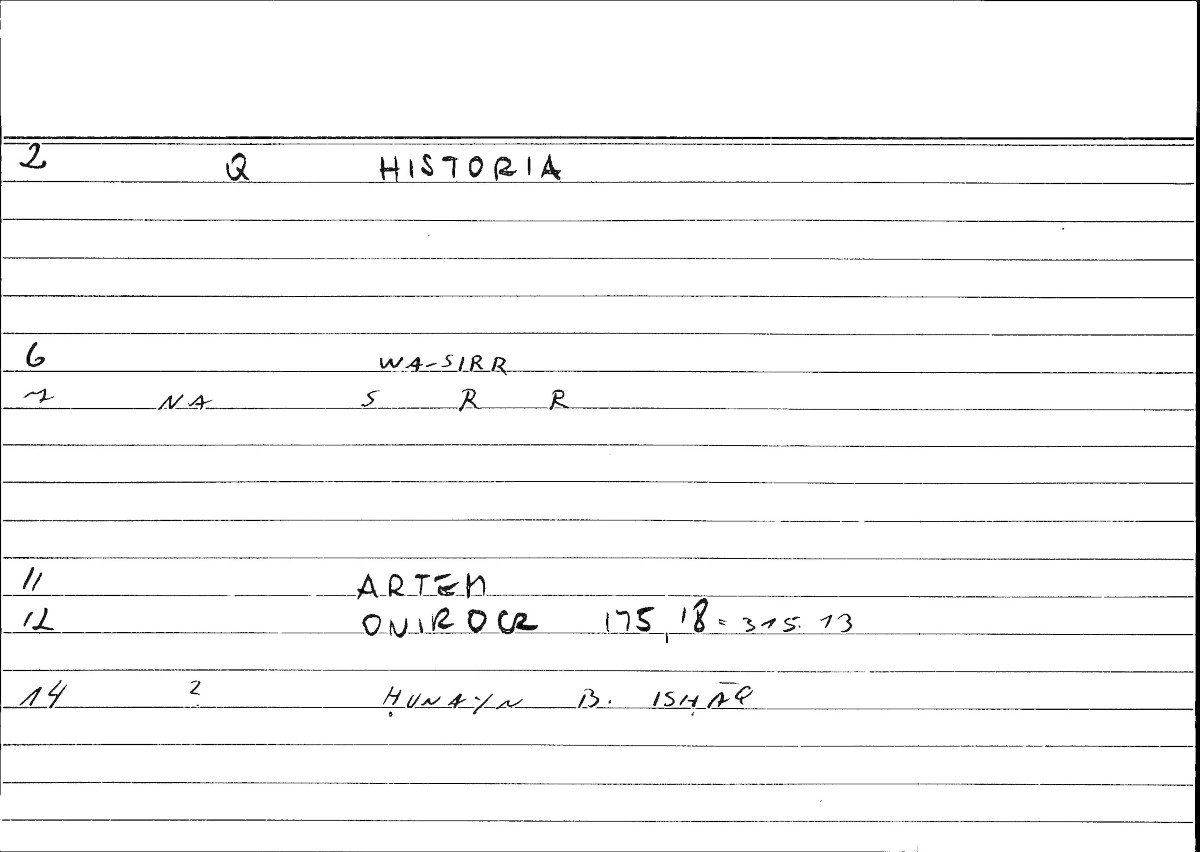 2 Q HISTORIA
6 WA-SIRR
7 NA S R R
11 ARTEM
12 ONIROCR 175,18 = 315.13
14 2 ḤUNAYN B. ISḤĀQ